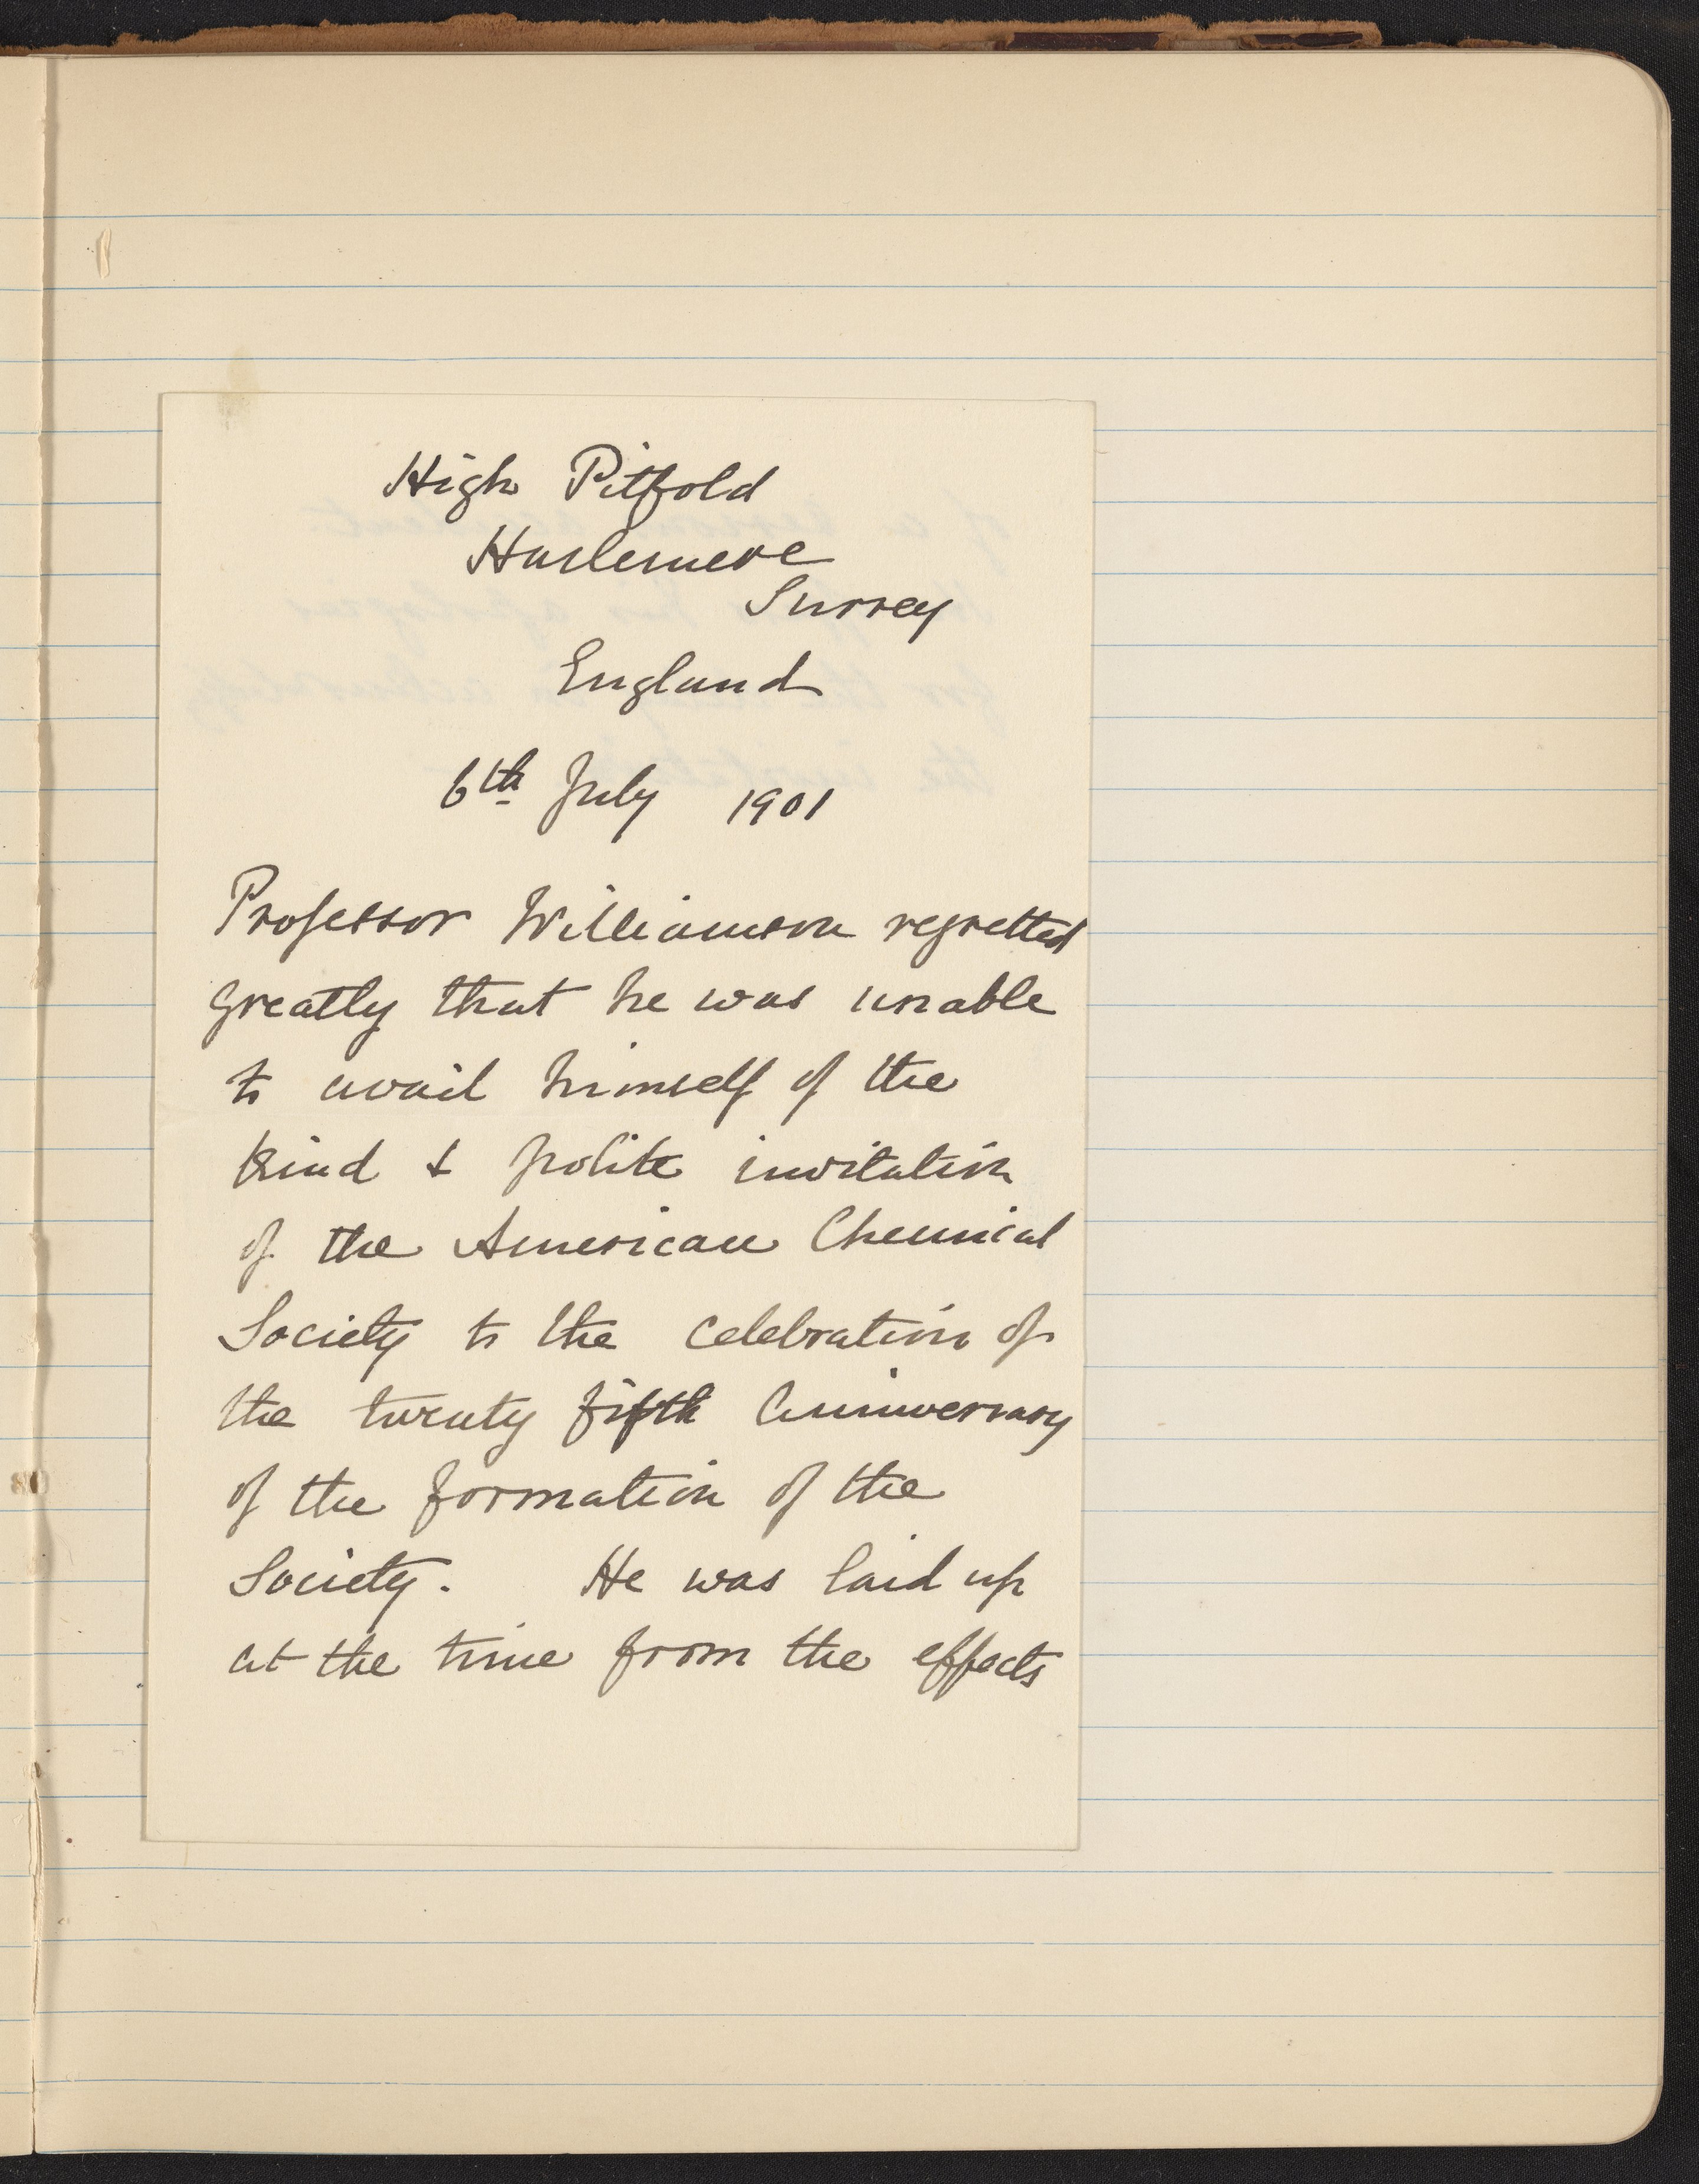 High Pitfold
Haslemere
Surrey
England
6th July 1901
Professor Williamson regretted
greatly that he was unable
to avail himself of the
kind & polite invitation
of the American Chemical
Society to the celebration of
the twenty fifth Anniversary
of the formation of the
Society. He was laid up
at the time from the effects